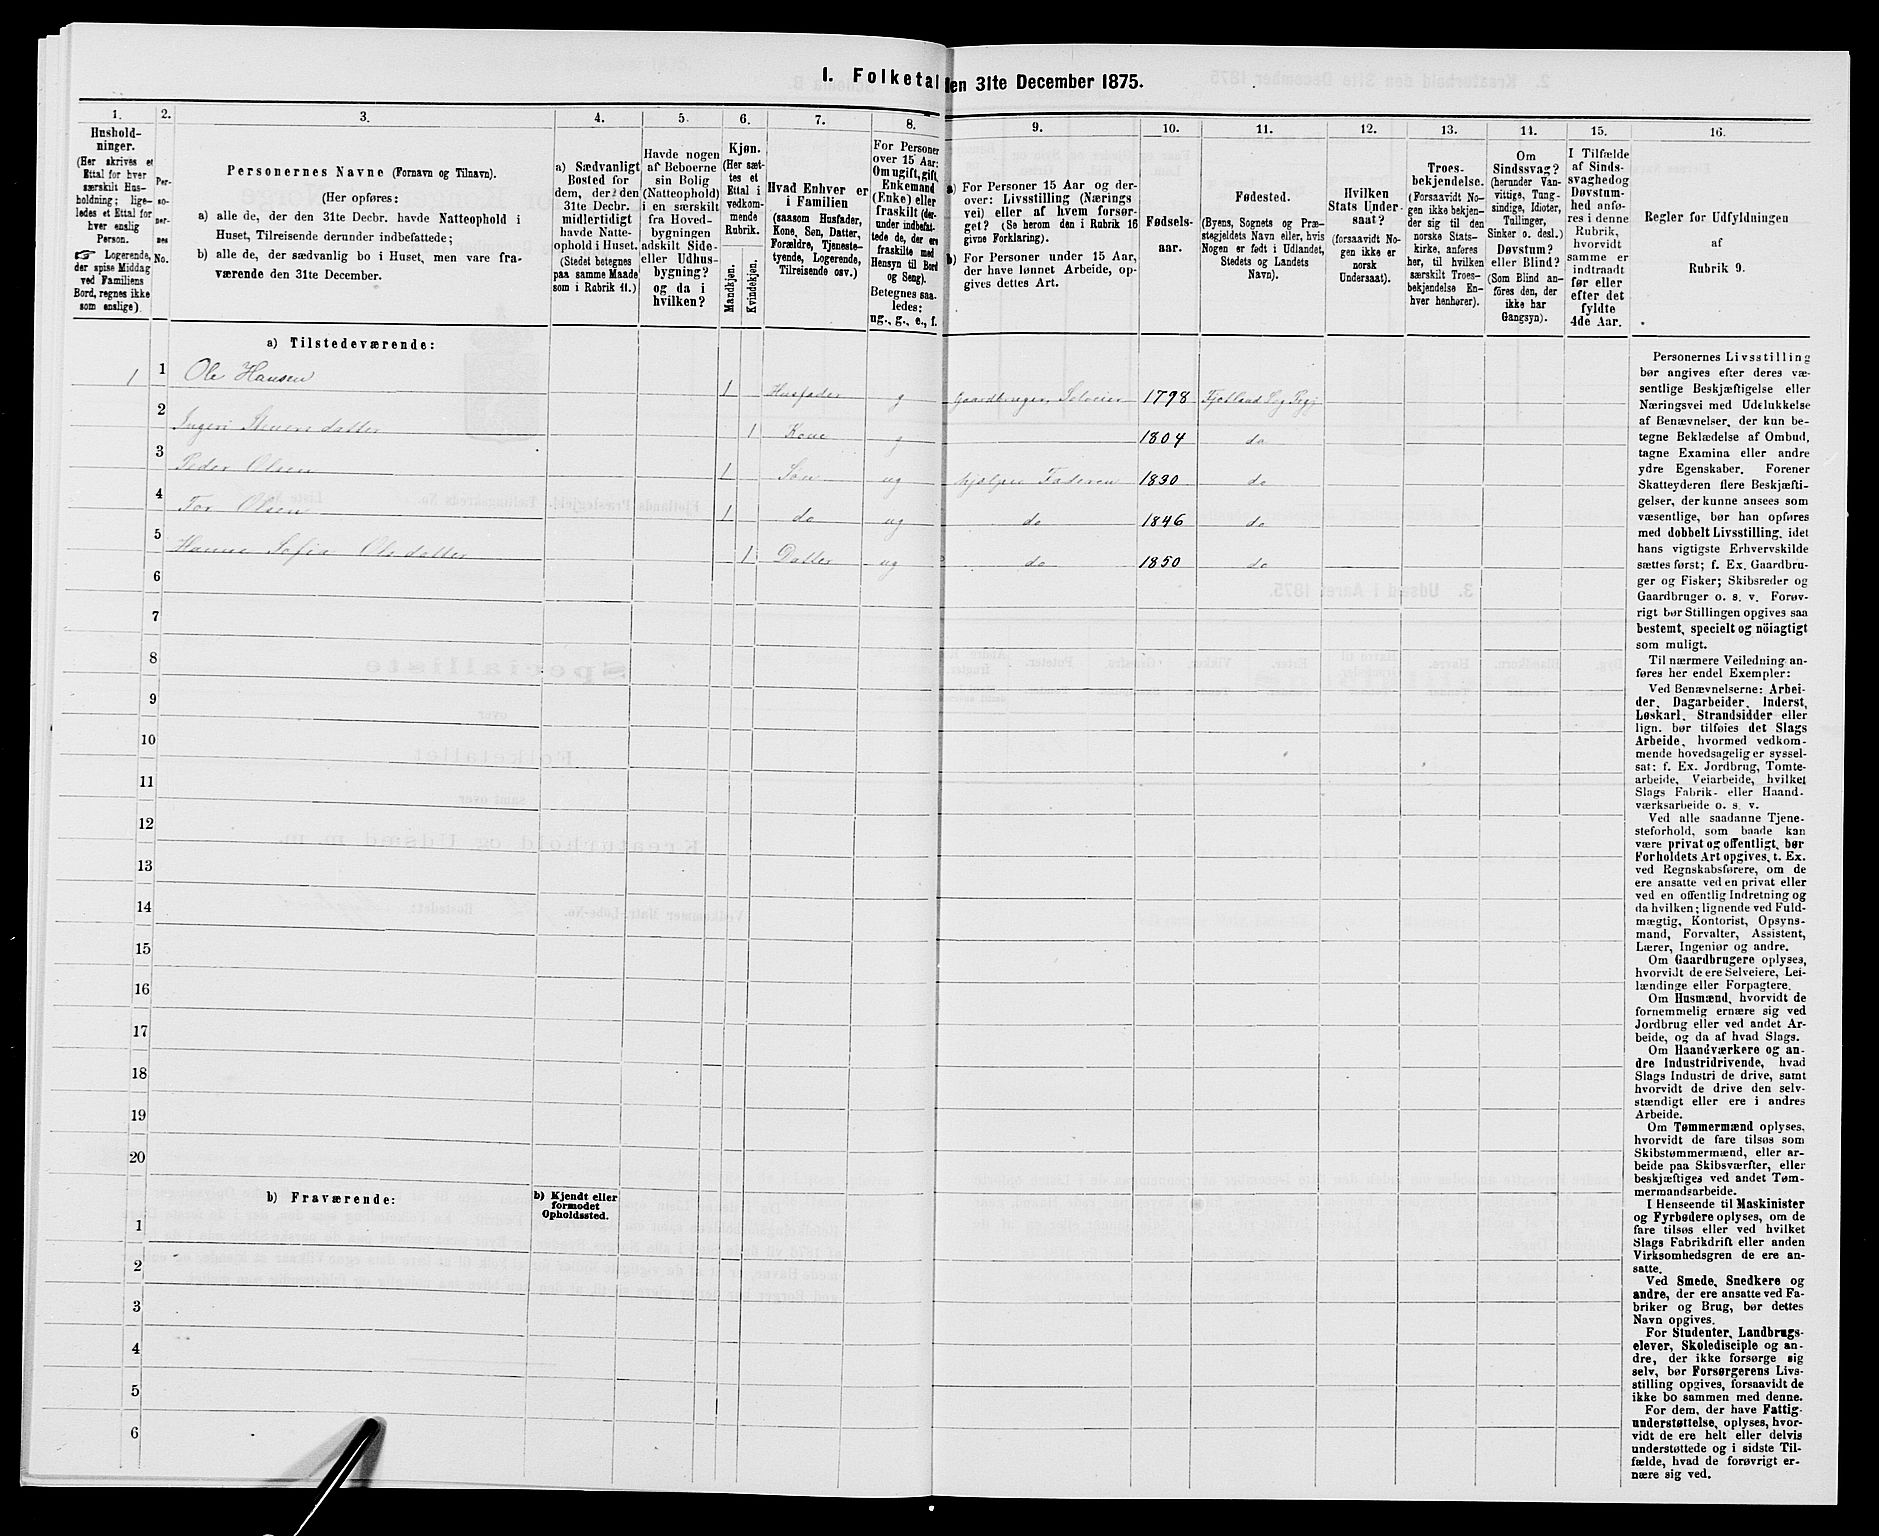 1. Folketal den 31te December 1875.
1. 2. 3. 4. 5. 6. 7. 8. 9. 10. 11. 12. 13. 14. 15. 16.
Hushold-
ninger.
(Her skrives et
Ettal for hver
særskilt Hus-
holdning; lige-
ledes et Ettal for
hver enslig
Person.
☞ Logerende,
der spise Middag
ved Familiens
Bord, regnes ikke
som enslige).
Per-
so-
ner-
nes
No.
Personernes Navne (Fornavn og Tilnavn).
(Her opføres:
a) alle de, der den 31te Decbr. havde Natteophold i
Huset, Tilreisende derunder indbefattede;
b) alle de, der sædvanlig bo i Huset, men vare fra-
værende den 31te December.
a) Sædvanligt
Bosted for
dem, der den
31te Decbr.
midlertidigt
havde Natte-
ophold i Huset.
(Stedet betegnes
paa samme Maade
som i Rubrik 11.)
Havde nogen
af Beboerne
sin Bolig
(Natteophold)
i en særskilt
fra Hoved-
bygningen
adskilt Side-
eller Udhus-
bygning?
og da i
hvilken?
Kjøn.
(Her sæt-
tes et
Ettal i
vedkom-
mende
Rubrik.
Mandkjøn.
Kvindekjøn.
Hvad Enhver er
i Familien
(saasom Husfader,
Kone, Søn, Datter,
Forældre, Tjeneste-
tyende, Logerende,
Tilreisende osv.)
For Personer
over 15 Aar:
Om ugift, gift,
Enkemand
(Enke) eller
fraskilt (der-
under indbefat-
tede de, der ere
fraskilte med
Hensyn til Bord
og Seng).
Betegnes saa-
ledes:
ug., g., e., f.
a) For Personer 15 Aar og der-
over: Livsstilling (Nærings
vei) eller af hvem forsør-
get? (Se herom den i Rubrik 16
givne Forklaring).
b) For Personer under 15 Aar,
der have lønnet Arbeide, op-
gives dettes Art.
Fødsels-
aar.
Fødested.
(Byens, Sognets og Præ-
stegjeldets Navn eller, hvis
Nogen er født i Udlandet,
Stedets og Landets
Navn).
Hvilken
Stats Under-
saat?
(forsaavidt No-
gen ikke er
norsk
Undersaat).
Troes-
bekjendelse.
(Forsaavidt No-
gen ikke bekjen-
der sig til den
norske Stats-
kirke, anføres
her, til hvilken
særskilt Troes-
bekjendelse En-
hver henhører).
Om
Sindssvag?
(herunder Van-
vittige, Tung-
sindige, Idioter,
Tullinger,
Sinker o. desl.)
Døvstum?
eller Blind?
(Som Blind an-
føres den, der
ikke har
Gangsyn).
I Tilfælde
af Sinds-
svaghed og
Døvstum-
hed anfø-
res i denne
Rubrik,
hvorvidt
samme er
indtraadt
før eller
efter det
fyldte
4de Aar.
Regler for Udfyldningen
af
Rubrik 9.
a) Tilstedeværende:
1 1 Ole Hansen 1 Husfader g Gaardbruger, Selveier 1798 Fjotland
2 Ingeri 1 Kone g 1804 do
3 Peder Olsen 1 Søn ug hjælper Faderen 1830 do
4 Tor Olsen 1 do ug do 1846 do
5 Hanne Sofia Olsdatter 1 Datter ug do 1850 do
6
7
8
9
10
11
12
13
14
15
16
17
18
19
20
b) Fraværende:
b) Kjendt eller
formodet
Opholdssted.
1
2
3
4
5
6
Personernes Livsstilling
bør angives efter deres væ-
sentlige Beskjæftigelse eller
Næringsvei med Udelukkelse
af Benævnelser, der kun be-
tegne Beklædelse af Ombud,
tagne Examina eller andre
ydre Egenskaber. Forener
Skatteyderen flere Beskjæfti-
gelser, der kunne ansees som
væsentlige, bør han opføres
med dobbelt Livsstilling, idet
hans vigtigste Erhvervskilde
sættes først; f. Ex. Gaardbru-
ger og Fisker; Skibsreder og
Gaardbruger o. s. v. Forøv-
rigt bør Stillingen opgives saa
bestemt, specielt og nöiagtigt
som muligt.
Til nærmere Veiledning an-
føres her endel Exempler:
Ved Benævnelserne: Arbei-
der, Dagarbeider, Inderst,
Løskarl, Strandsidder eller
lign. bør tilføies det Slags
Arbeide, hvormed vedkom-
mende hovedsagelig er syssel-
sat; f. Ex. Jordbrug, Tomte-
arbeide, Veiarbeide, hvilket
Slags Fabrik- eller Haand-
værksarbeide o. s. v.
Ved alle saadanne Tjene-
steforhold, som baade kan
være privat og offentligt, bør
Forholdets Art opgives, t. Ex.
ved Regnskabsførere, om de
ere ansatte ved en privat eller
ved en offentlig Indretning og
da hvilken; lignende ved Fuld-
mægtig, Kontorist, Opsyns-
mand, Forvalter, Assistent,
Lærer, Ingeniør og andre.
Om Gaardbrugere oplyses,
hvorvidt de ere Selveiere, Lei-
lændinge eller Forpagtere.
Om Husmænd, hvorvidt de
fornemmelig ernære sig ved
Jordbrug eller ved andet Ar-
beide, og da af hvad Slags.
Om Haandværkere og an-
dre Industridrivende, hvad
Slags Industri de drive, samt
hvorvidt de drive den selv-
stændigt eller ere i andres
Arbeide.
Om Tømmermænd oplyses,
hvorvidt de fare tilsøs som
Skibstømmermænd, eller ar-
beide paa Skibsværfter, eller
beskjæftiges ved andet Tøm-
mermandsarbeide.
I Henseende til Maskinister
og Fyrbødere oplyses, om de
fare tilsøs eller ved hvilket
Slags Fabrikdrift eller anden
Virksomhedsgren de ere an-
satte.
Ved Smede, Snedkere og
andre, der ere ansatte ved Fa-
briker og Brug, bør dettes
Navn opgives.
For Studenter, Landbrugs-
elever, Skoledisciple og an-
dre, der ikke forsørge sig
selv, bør Forsørgerens Livs-
stilling opgives, forsaavidt de
ikke bo sammen med denne.
For dem, der have Fattig-
understøttelse, oplyses, hvor-
vidt de ere helt eller delvis
understøttede og i sidste Til-
fælde, hvad de forøvrigt er-
nære sig ved.